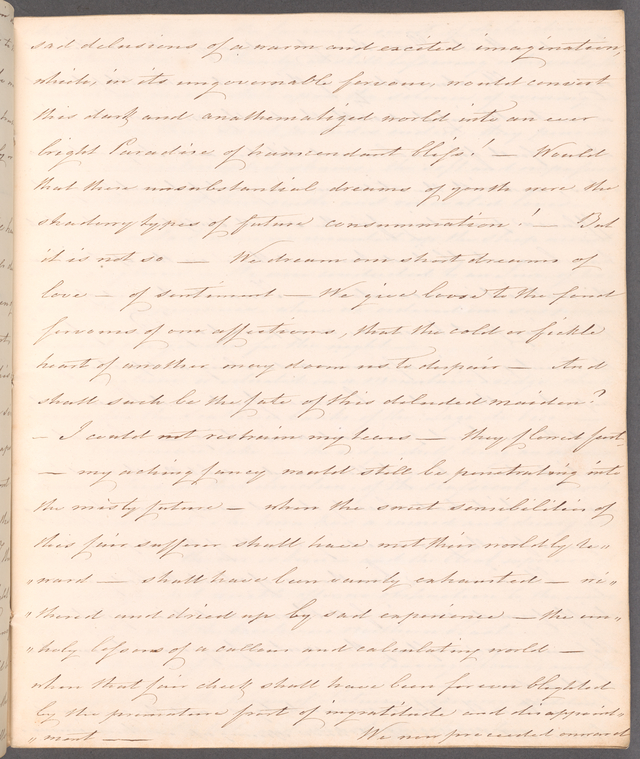 sad delusions of a warm and excited imagination,
which, in its ungovernable fervour, would convert
this dark and anathematized world into an ever
bright Paradise of transcendant bliss! — Would
that these unsubstantial dreams of youth were the
shadowy types of future consummation! — But
it is not so — We dream our short dreams of
love — of sentiment — We give loose to the fond
fervours of our affections, that the cold or fickle
heart of another may doom us to despair — And
shall such be the fate of this deluded maiden?
— I could not restrain my tears — they flowed fast
— my aching fancy would still be penetrating into
the misty future — when the sweet sensibilities of
this fair sufferer shall have met their worldly re"
"ward — shall have been vainly exhausted — wi"
"thered and dried up by sad experience — the un"
"holy lessons of a callous and calculating world —
when that fair cheek shall have been forever blighted
by the premature frost of ingratitude and disappoint"
"ment — We now proceeded onward